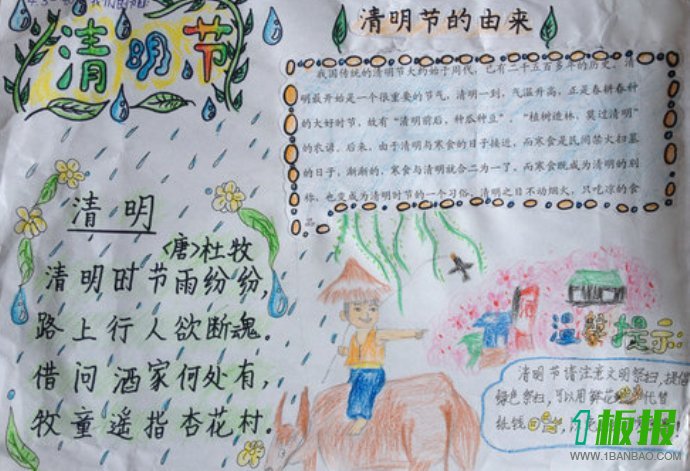 清明节
清明
〈唐〉杜牧
清明时节雨纷纷,
路上行人欲断魂。
借问酒家何处有,
牧童遥指杏花村.
清明节的由来
我国传统的清明节大约始于周代，已有二千五百多年的历史。清
明最开始是一个很重要的节气，清明一到，气温升高，正是春耕春种
的大好时节，故有“清明前后，种瓜种豆”。“植树造林，莫过清明”
的农谚。后来，由于清明与寒食的日子接近，而寒食是民间禁火扫墓
的日子，渐渐的，寒食与清明就合二为一了，而寒食既成为清明的别
称，也变成为清明时节的一个习俗，清明之日不动烟火，只吃凉的食
品。
温馨提示:
清明节请注意文明祭扫,提倡
绿色祭扫,可以用鲜花代替
纸钱
1板报
WWW.1BANBAO.COM